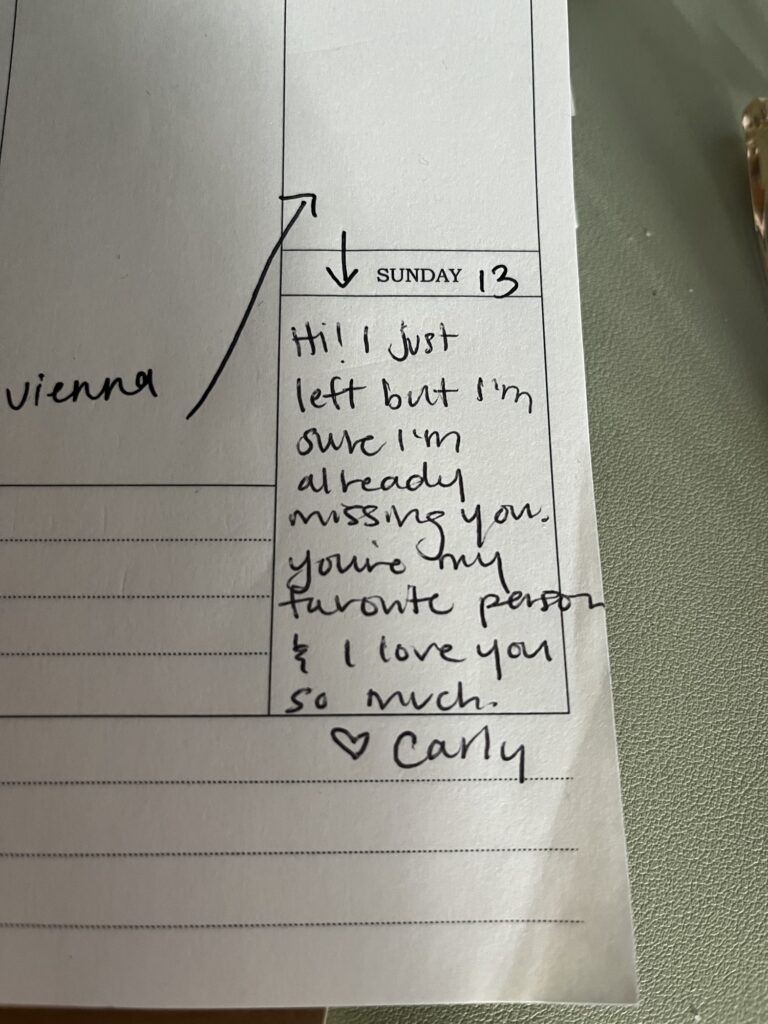 SUNDAY 13
vienna
Hi! I just
left but I'm
sure I'm
already
missing you.
you're my
favorite person
& I love you
so much.
♡ Carly